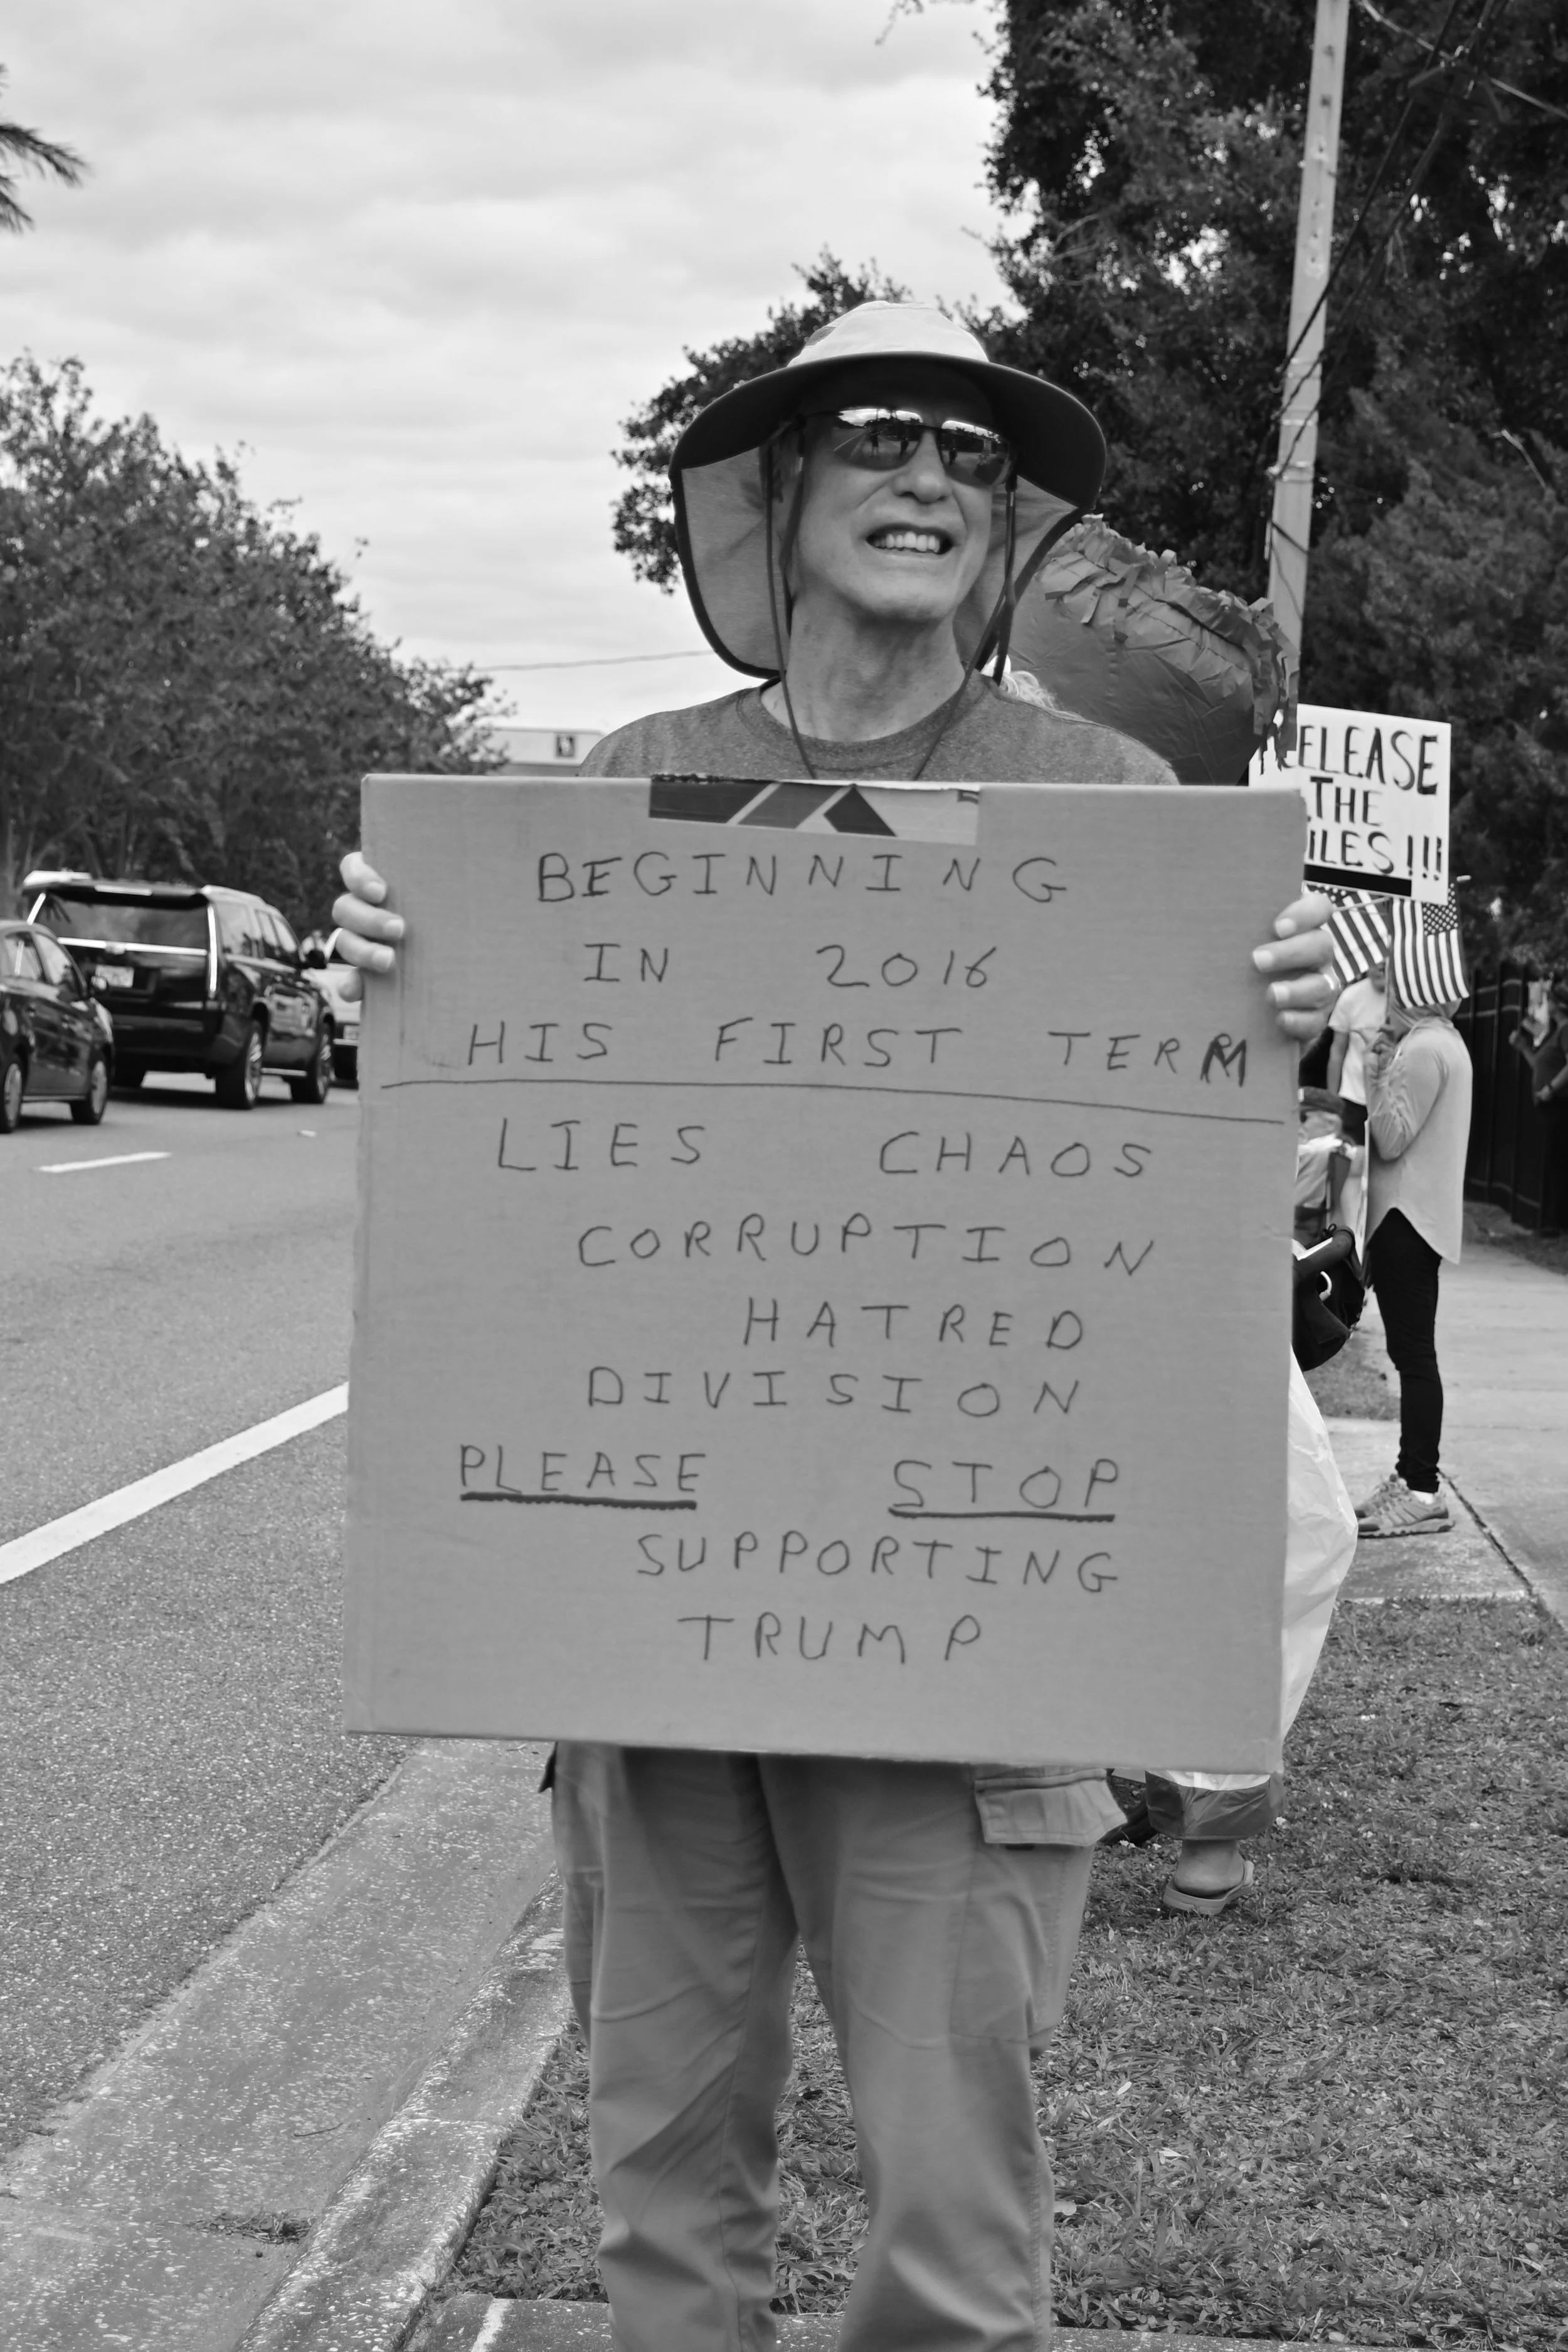 BEGINNING
IN 2016
HIS FIRST TERM
LIES CHAOS
CORRUPTION
HATRED
DIVISION
PLEASE STOP
SUPPORTING
TRUMP
ELEASE
THE
ILES!!!